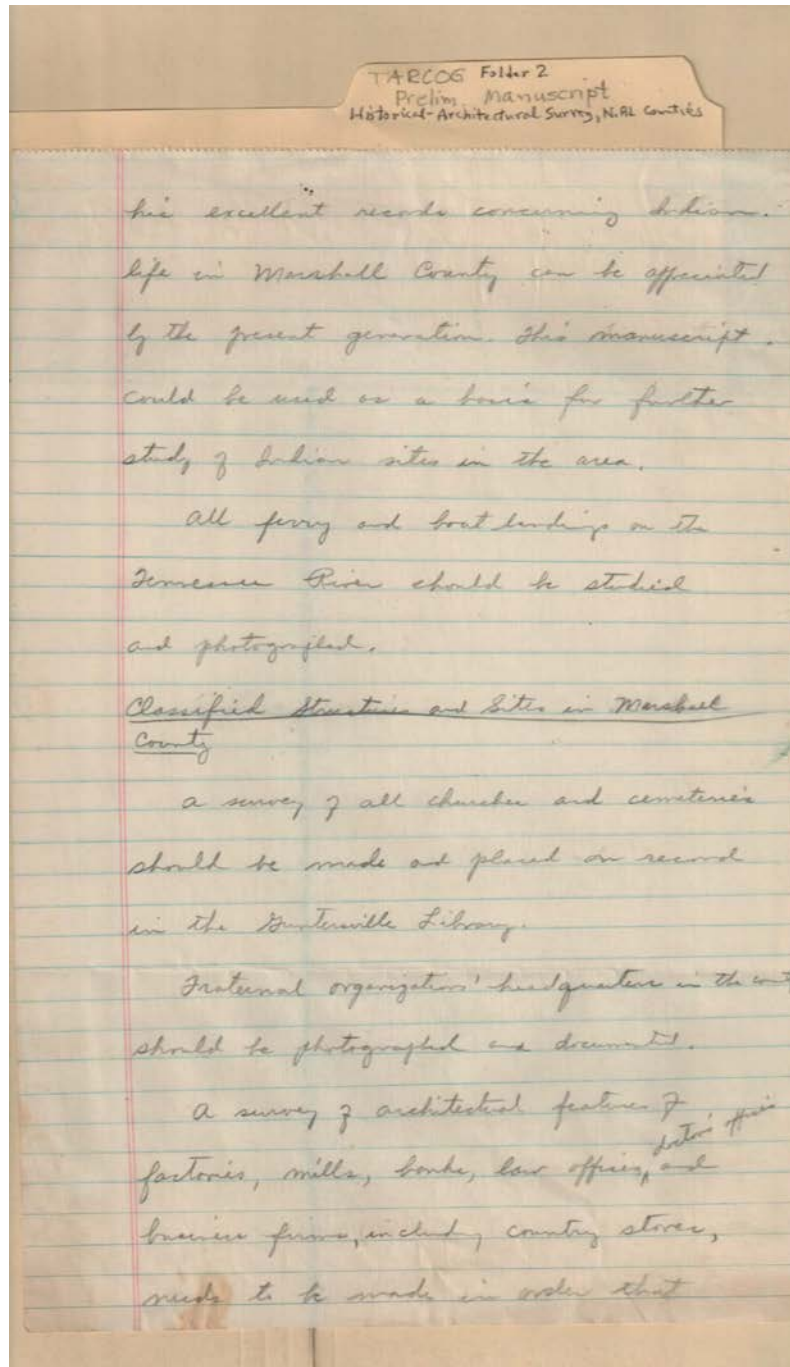 TARCOG Folder 2
Prelim. Manuscript
Historical-Architectural Survey, N. AL Counties
his excellent records concerning Indian
life in Marshall County can be appreciated
by the present generation. This manuscript
could be used as a basis for further
study of Indian sites in the area.
All ferry and boat landings on the
Tennessee River should be studied
and photographed.
Classified Structures and Sites in Marshall
County
A survey of all churches and cemeteries
should be made and placed on record
in the Guntersville Library.
Fraternal organizations' headquarters in the
should be photographed and documented.
A survey of architectural features of
doctors' offices
factories, mills, banks, law offices, and
business firms, including country stores,
needs to be made in order that